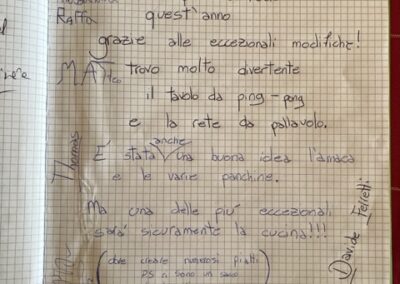 Raffa
quest'anno
grazie alle eccezionali modifiche!
MATteo trovo molto divertente
il tavolo da ping-pong
e la rete da pallavolo.
Thomas
E' stata anche una buona idea l'amaca
e le varie panchine.
Ma una delle più eccezionali
sarà sicuramente la cucina!!!
(che create numerosi piatti
PS ci sono un sacco
Davide Felletti